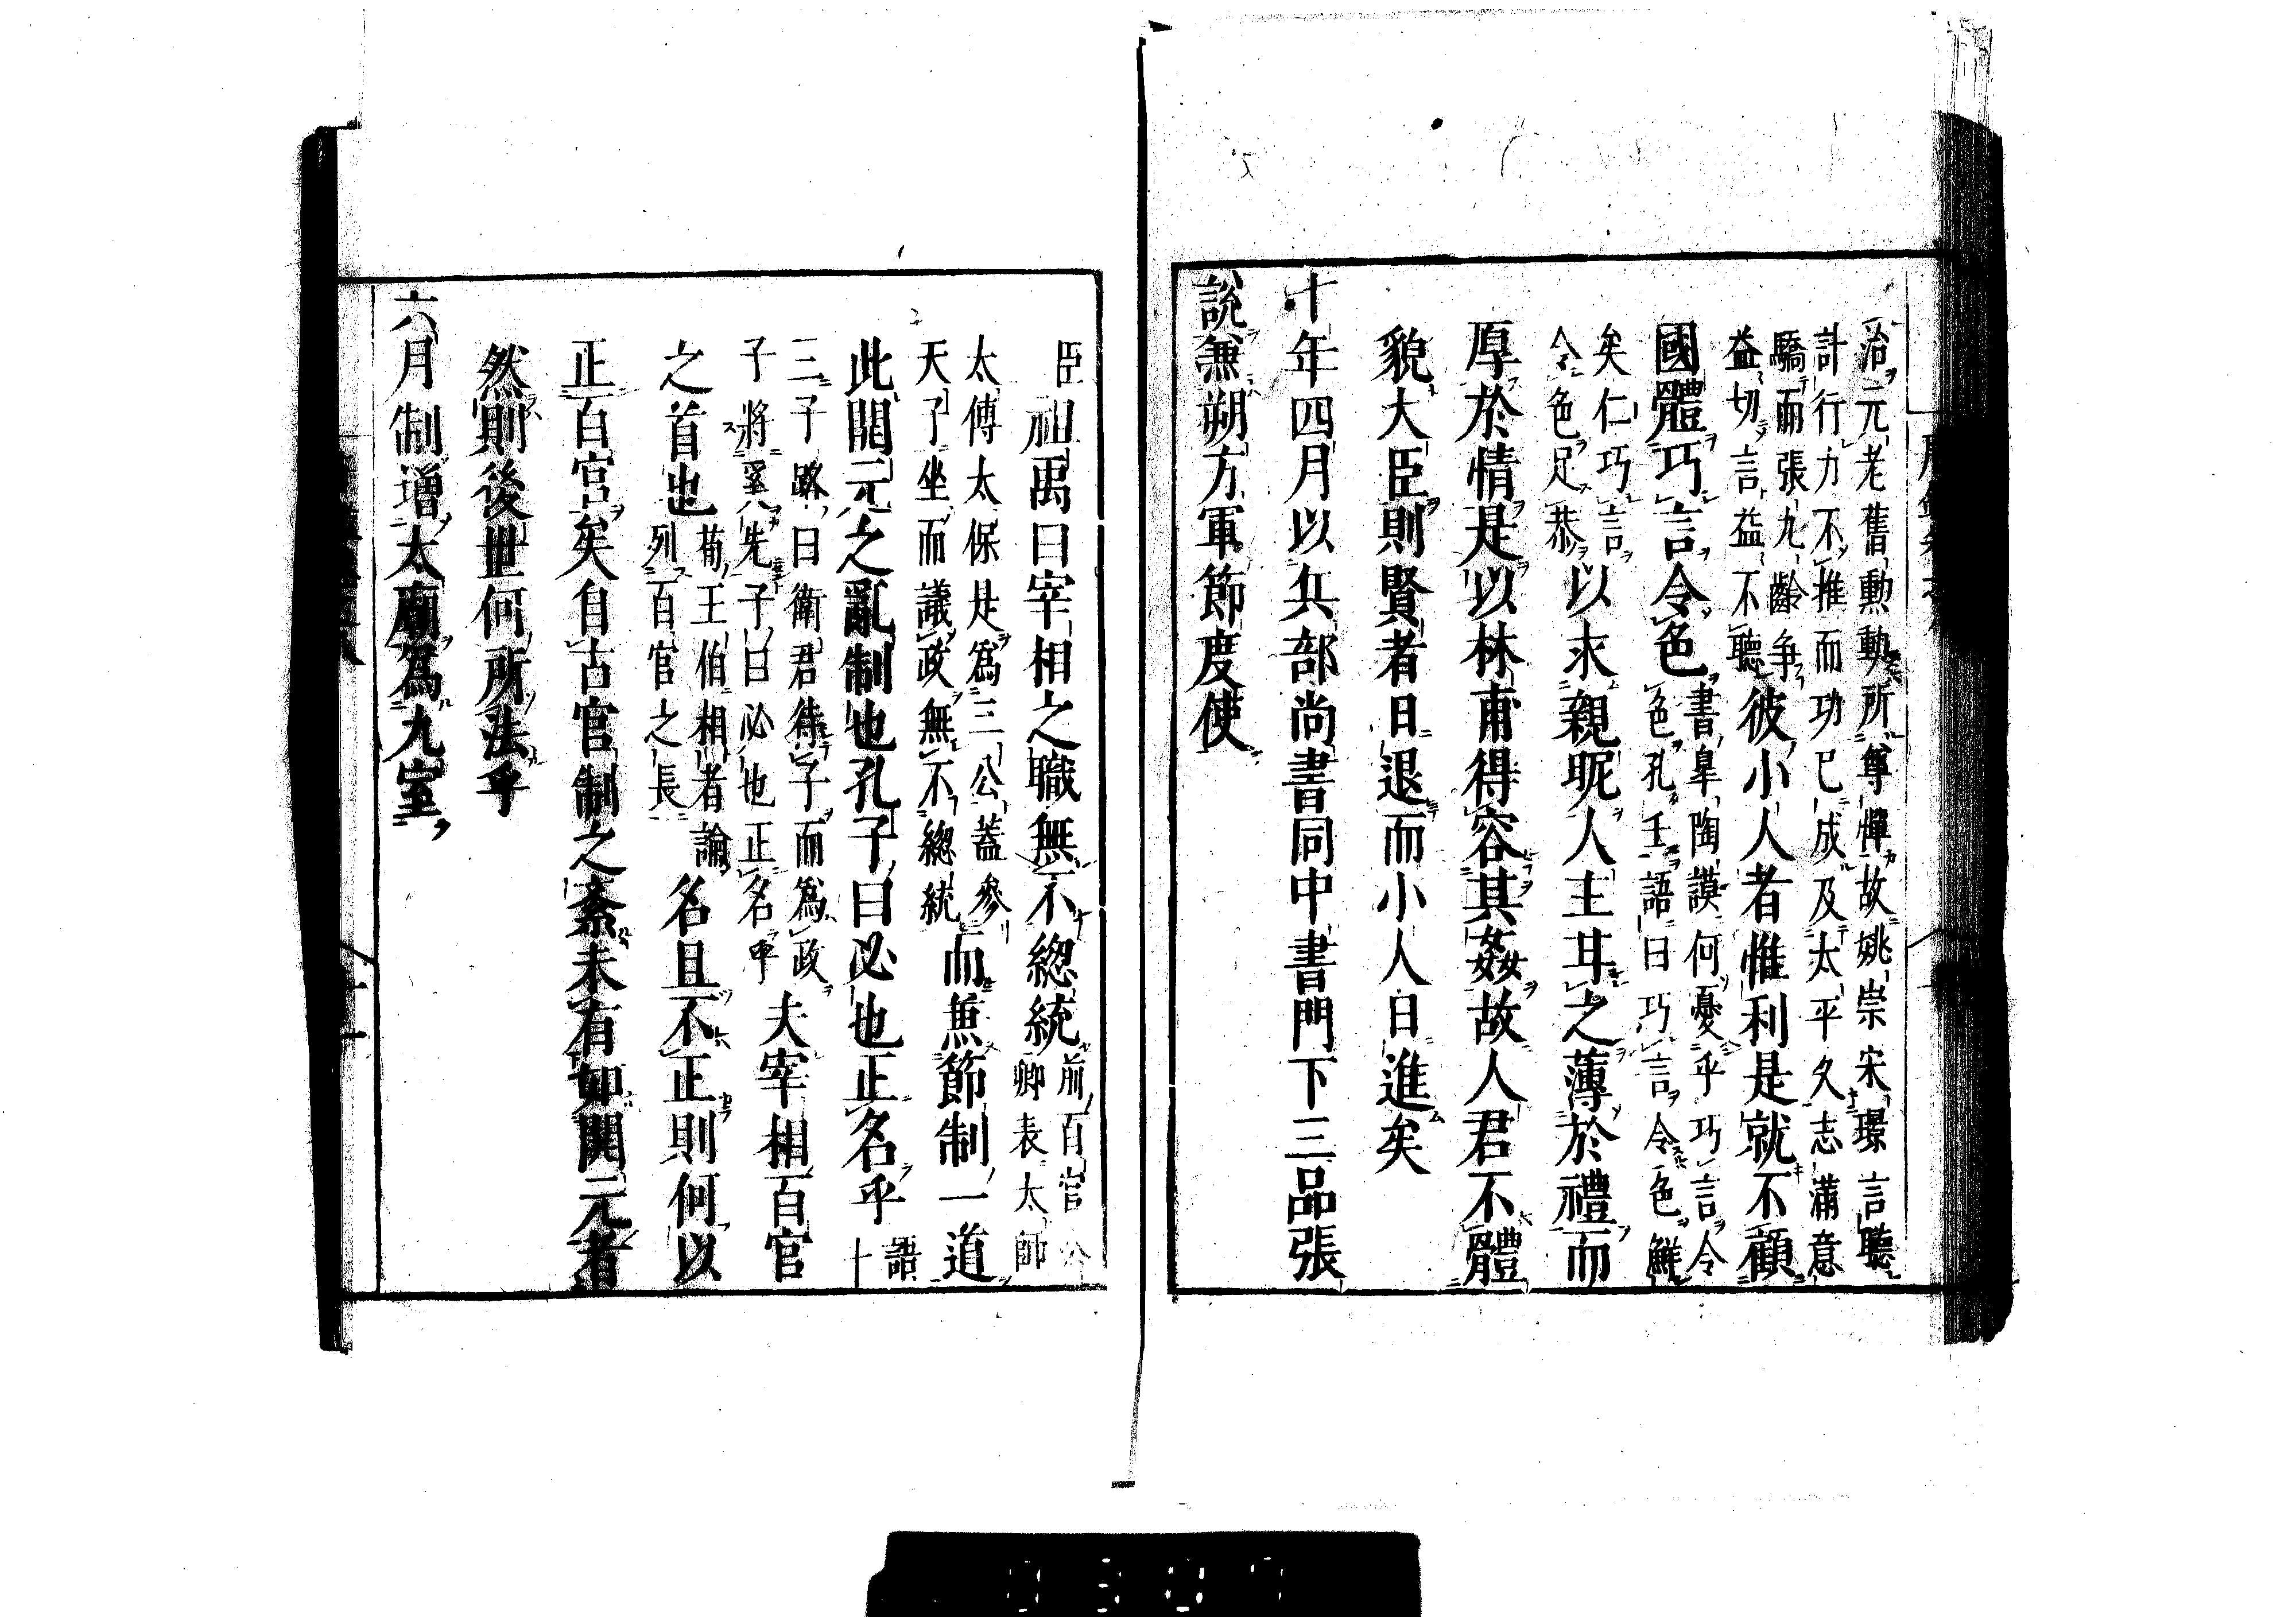 治元老舊勳動所尊憚故姚崇宋璟言聽
計行力不推而功已成及太平久志滿意
驕而張九齡爭
益切言益不聽彼小人者惟利是就不顧
國體巧言令色書皐陶謨何憂乎巧言令
色孔壬語曰巧言令色鮮
矣仁巧言
令色足恭以求親昵人主耳之薄於禮而
厚於情是以林甫得容其姦故人君不體
貌大臣則賢者日退而小人日進矣
十年四月以兵部尚書同中書門下三品張
說兼朔方軍節度使
臣祖禹曰宰相之職無不總統前百官公
卿表太師
太傅太保是爲三公蓋參
天子坐而議政無不總統而兼節制一道
此開元之亂制也孔子曰必也正名乎語
十
三子路曰衛君待子而爲政
子將奚先子曰必也正名乎夫宰相百官
之首也荀王伯相者論
列百官之長名且不正則何以
正百官矣自古官制之紊未有如開元者
然則後世何所法乎
六月制增太廟爲九室